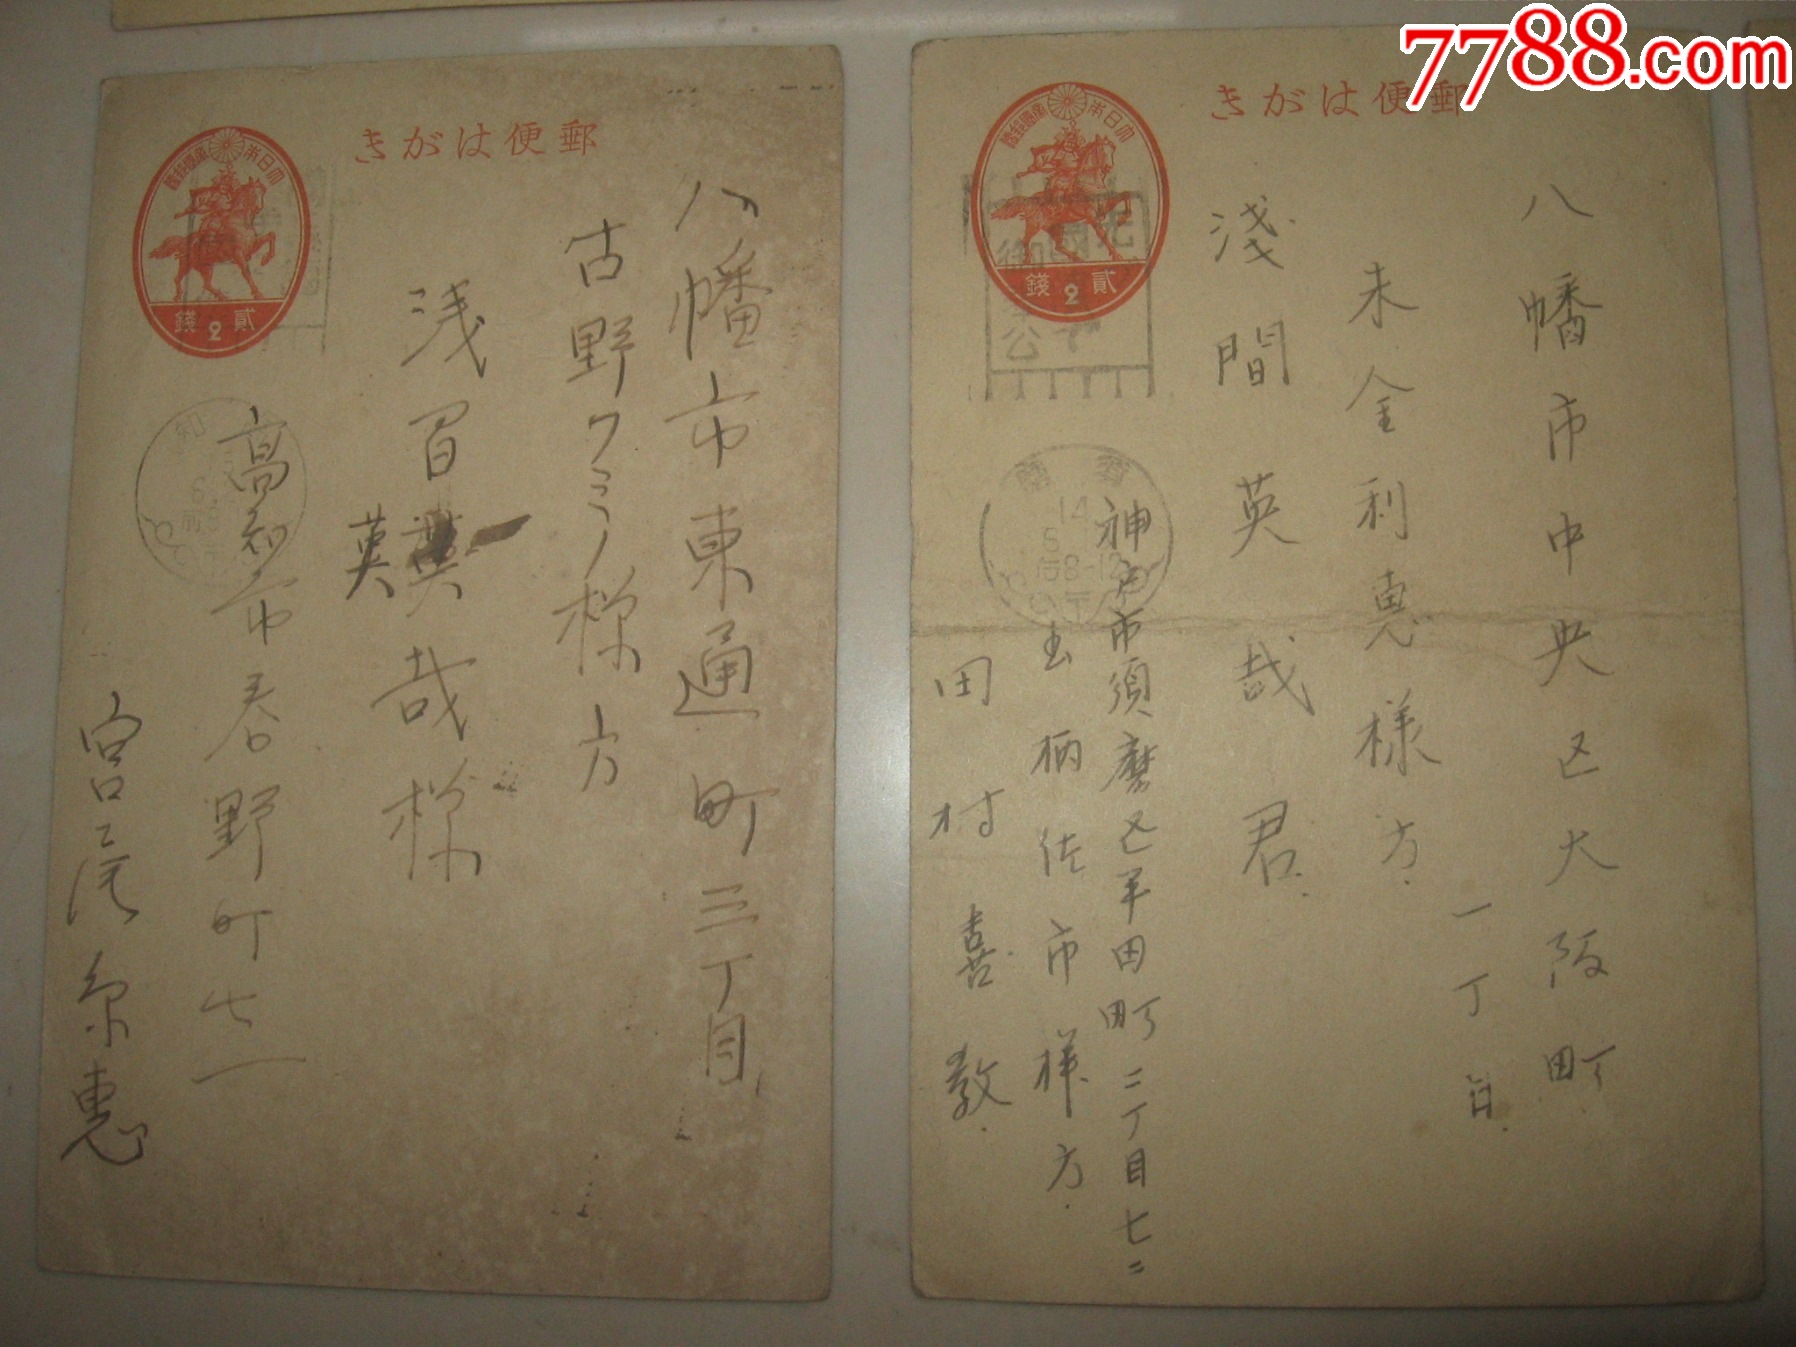 7788.com
郵便はがき
大日本帝國郵便
貳錢
2
八幡市東通町三丁目
古野フミノ様方
浅間英哉様
英
高知市春野町七一
宮尾奈恵
郵便はがき
大日本帝國郵便
貳錢
2
八幡市中央区大阪町
一丁目
末金利恵様方
淺間英哉君
神戸市須磨区平田町二丁目七二
柄佐市様方
田村喜教
14